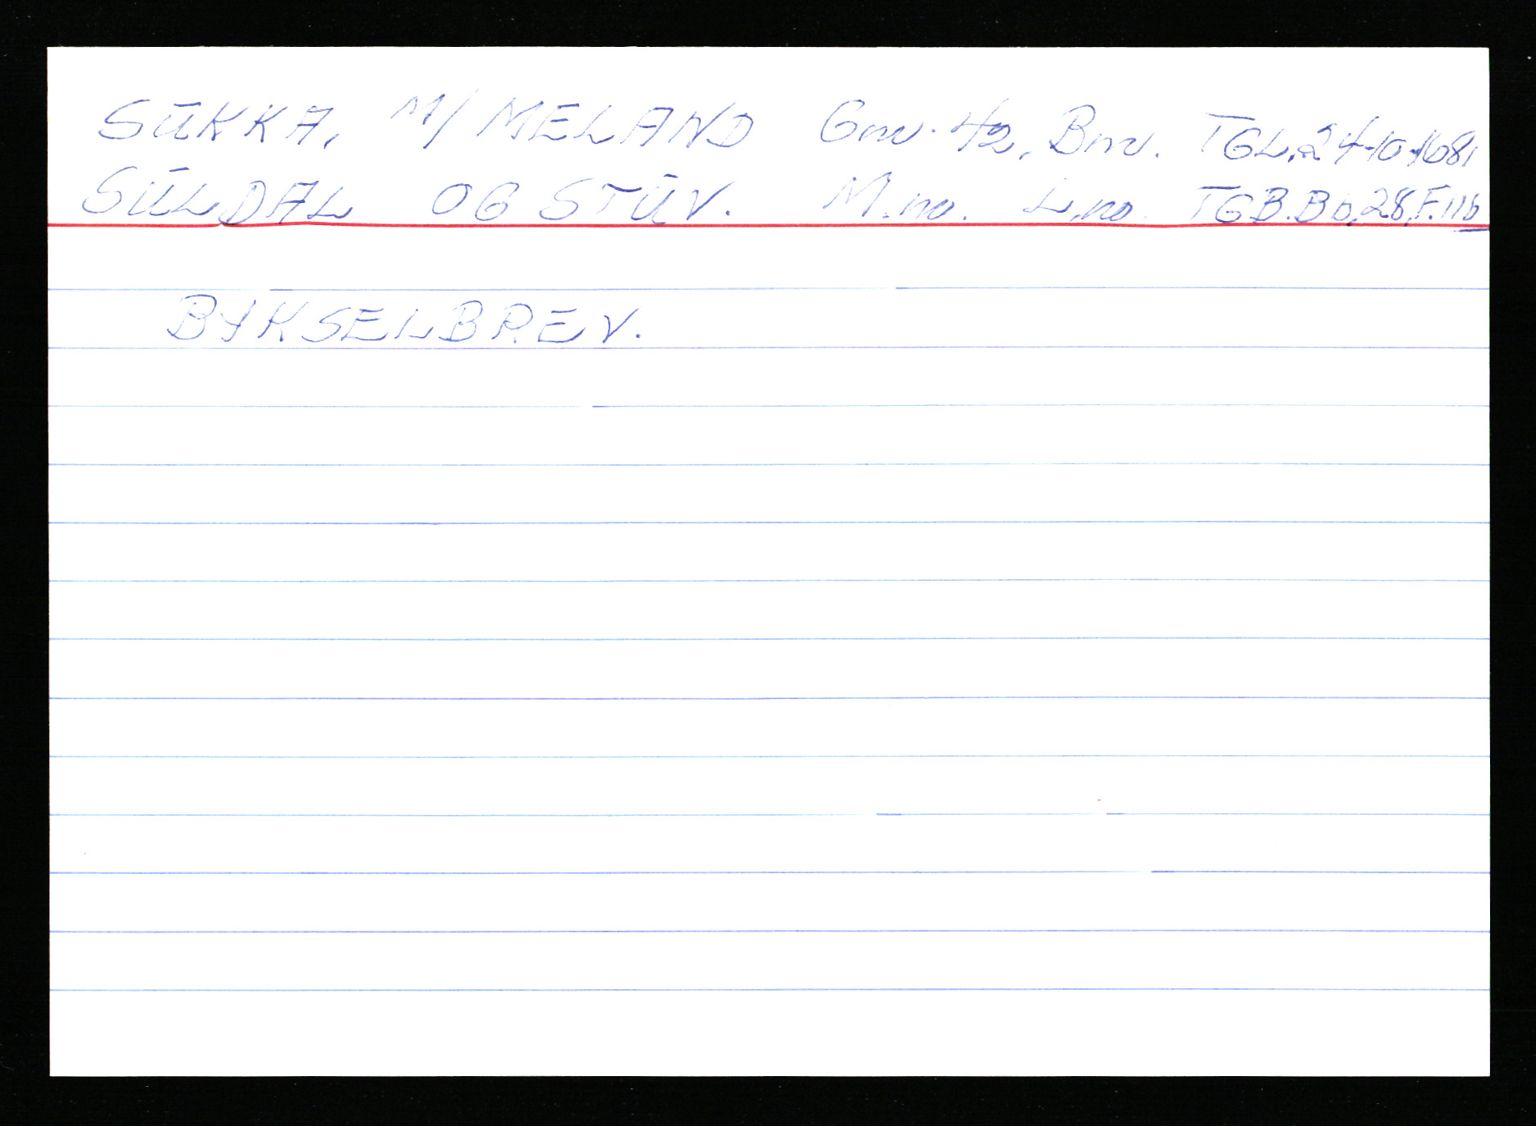 SŪKKA, M/MELAND Gnr. 42, Bnr. TGL. 24-10-1681
SŪLDAL OG STŪV. M.no. L.no. TGB.Bb,28,F.11b
BYKSELBREV.